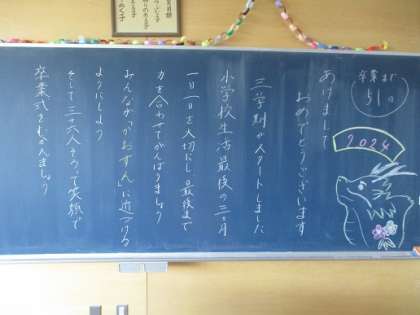 卒業まで
51日
あけまして
おめでとうございます
三学期がスタートしました
小学校生活最後の三ヶ月
一日一日を大切にし最後まで
力を合わせてがんばりましょう
みんなが「かおずん」に近づける
ようにしよう
そして二十六人そろって笑顔で
卒業式をむかえましょう
2024